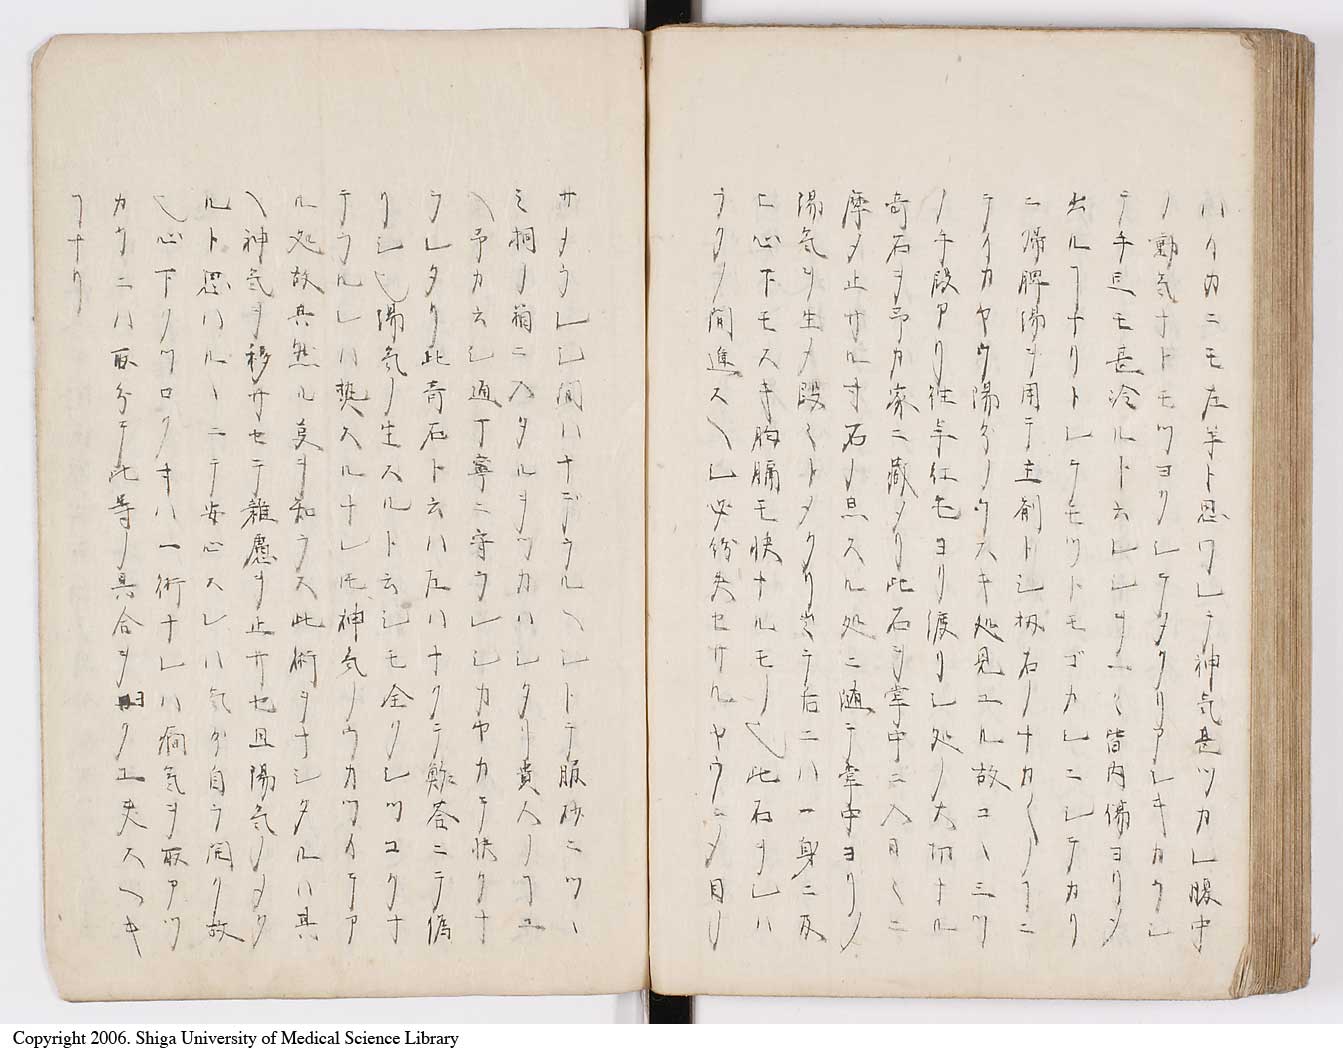 ハイカニモ左羊ト思ワレテ神気甚ツカレ腹中
ノ動気ナトモツヨクレテタクリアレキカクレ
テ手足モ甚冷ルト云レシヲ一々皆内傷ヨリメ
出ルヿナリトレテモツトモゴカレニシテカリ
ニ帰脾湯ヲ用テ主剤トシ扨右ノナカ〱ノヿニ
テイカヤウ陽分ノウスキ処見ユル故コヽ三ツ
ノ手段アリ往年紅毛ヨリ渡リシ処ノ大切ナル
奇石ヲ予カ家ニ蔵メリ此石ヲ掌中ニ入日々ニ
摩メ止サルヰ石ノ点スル処ニ随テ掌中ヨリノ
陽気ヲ生メ段々トメクリ〆テ后ニハ一身ニ反
ヒ心下モスキ胸膈モ快ナルモノ也此石ヲレハ
ラクノ間進スヘレ必紛失セサルヤウニメ目ノ
サメラレシ間ハナデラルヘシトテ服砂ニツヽ
ミ桐ノ箱ニ入タルヲツカハレタリ貴人ノヿユ
ヘ予カ云シ通丁寧ニ守ラレシカヤカテ快クナ
ラレタリ此奇石ト云ハ左ハナクテ鮓荅ニテ偽
リシ也陽気ノ生スルト云シモ全クレツコクナ
テラルレハ熱スルナレ𪜈神気ノウカワイテア
ル処故其然ル㕝ヲ知ラス此術ヲナシタルハ其
ヘ神気ヲ移サセテ雑慮ヲ止サセ且陽気ノメク
ルト思ハルヽニテ安心スレハ気ガ自ラ開ク故
也心下クツロクヰハ一術ナレハ癇気ヲ取アツ
カウニハ取分テ此等ノ具合ヲヨク工夫スヘキ
ヿナリ
Copyright 2006. Shiga University of Medical Science Library